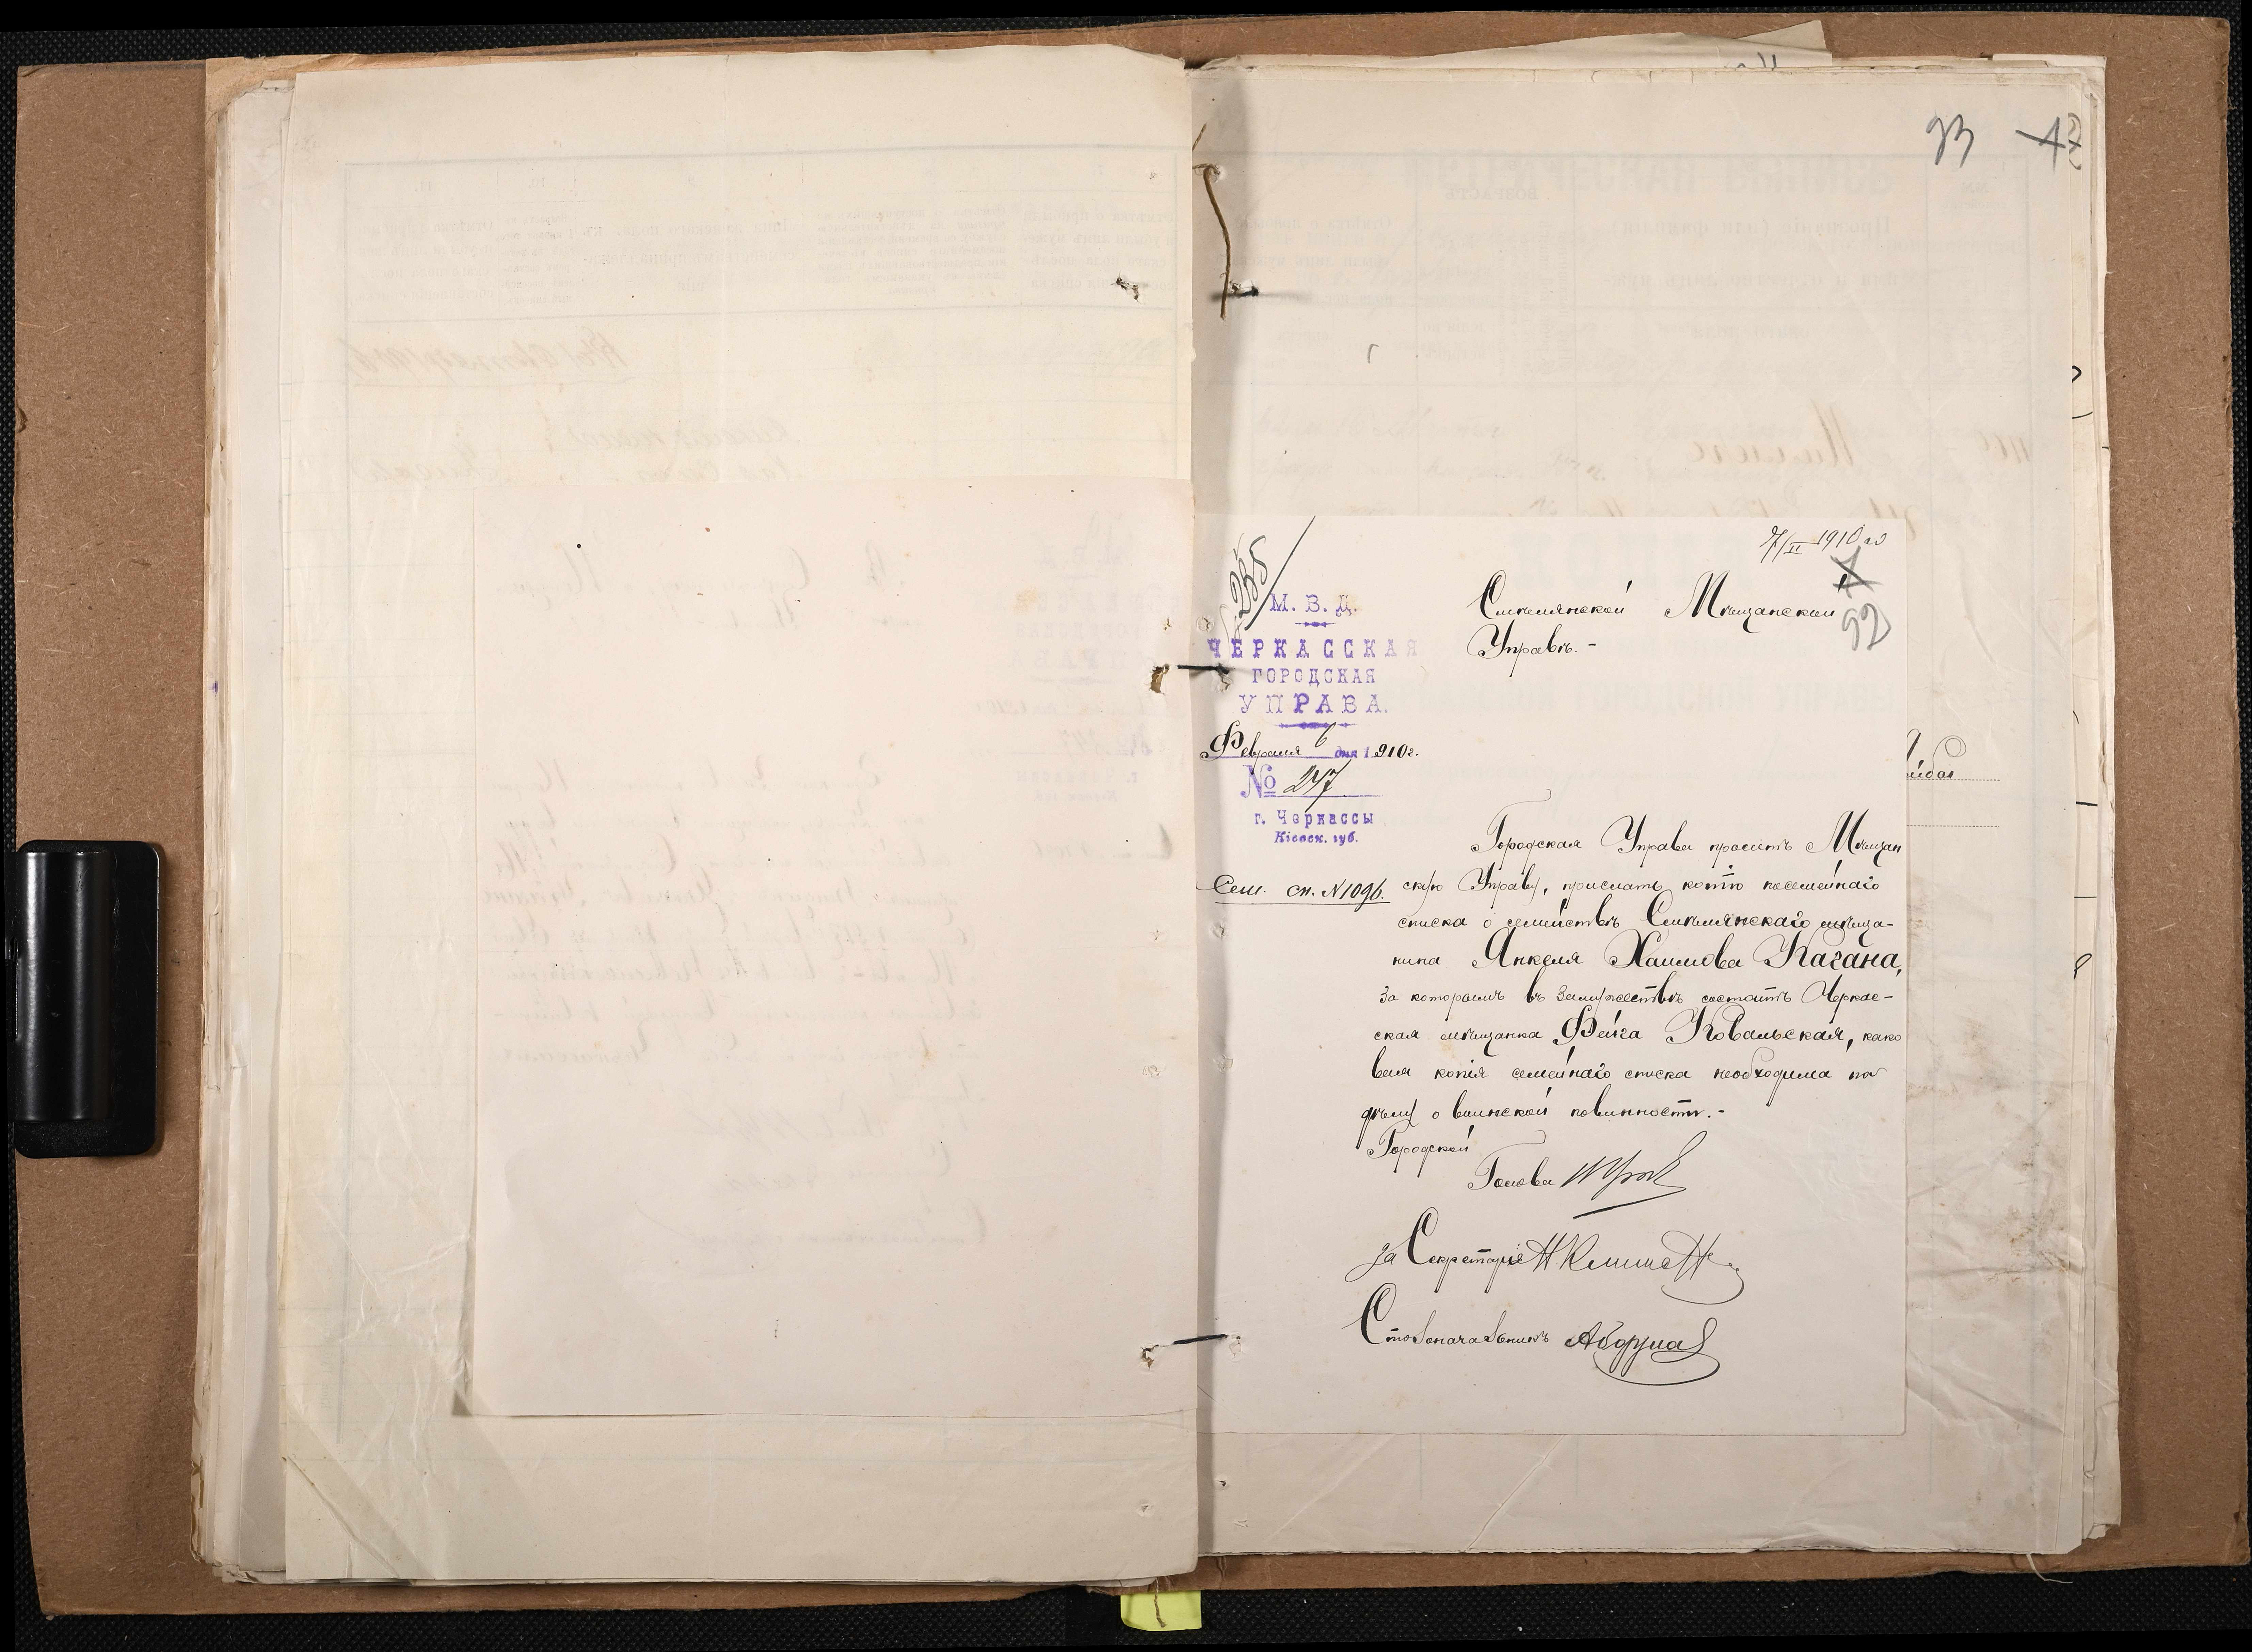 93
7/II 1910 го
235
92
М. В. Д.
ЧЕРКАССКАЯ
ГОРОДСКАЯ
УПРАВА.
Февраля 6 дня 1910г.
№ 247
г. Черкассы
Кіевск. губ.
Смѣлянской Мѣщанской
Управѣ.-
Городская Управа проситъ Мѣщан
Сем. сп. N 1096.
скую Управу, прислать копію посемейнаго
списка о семействѣ Смѣлянскаго мѣща-
нина Янкеля Хаимова Кагана,
за которымъ въ замужествѣ состоитъ Черкас-
ская мѣщанка Фейга Ковальская, како
вая копія семейнаго списка необходима по
дѣлу о воинской повинности.-
Городской
Голова
За Секретаря
Столоначальникъ